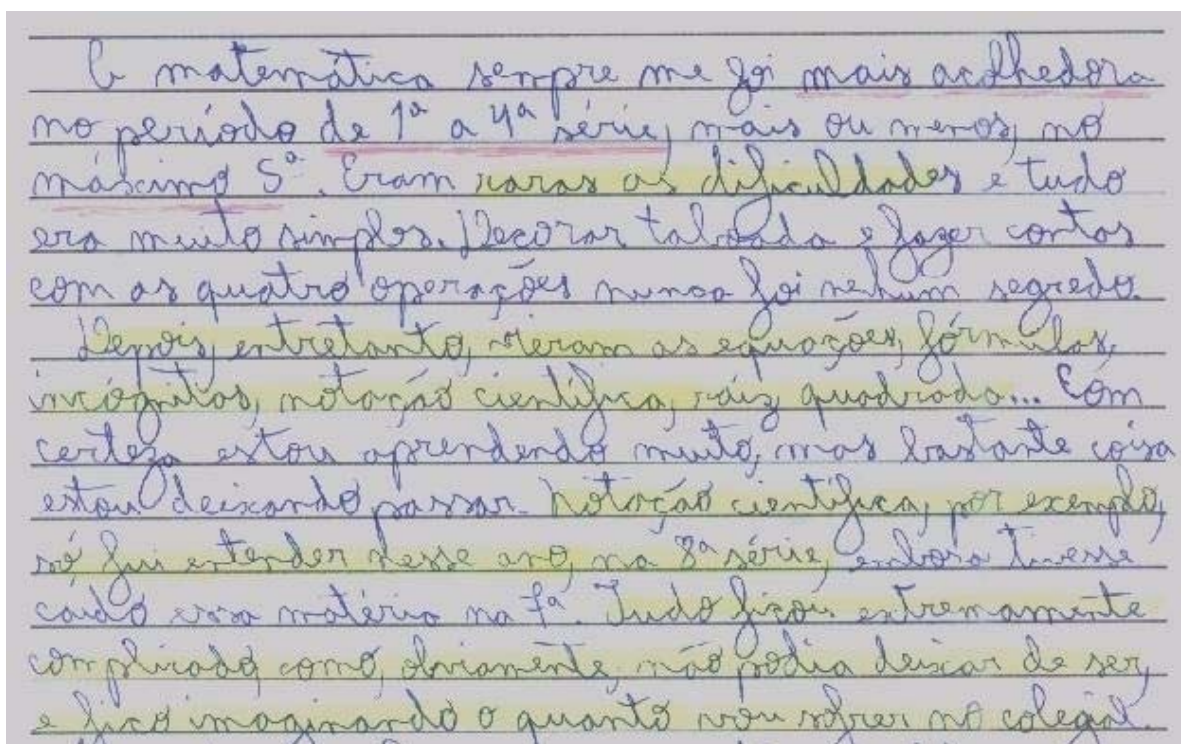 A matemática sempre me foi mais acolhedora
no período de 1ª a 4ª série, mais ou menos, no
máximo 5ª. Eram raras as dificuldades e tudo
era muito simples. Decorar tabuada e fazer contas
com as quatro operações nunca foi nenhum segredo.
Depois, entretanto, vieram as equações, fórmulas,
incógnitas, notação científica, ráiz quadrada... Com
certeza estou aprendendo muito, mas bastante coisa
estou deixando passar. Notação científica, por exemplo,
só fui entender nesse ano, na 8ª série, embora tivesse
caído essa matéria na 7ª. Tudo ficou extremamente
complicado, como, obviamente, não podia deixar de ser,
e fico imaginando o quanto vou sofrer no colegial.